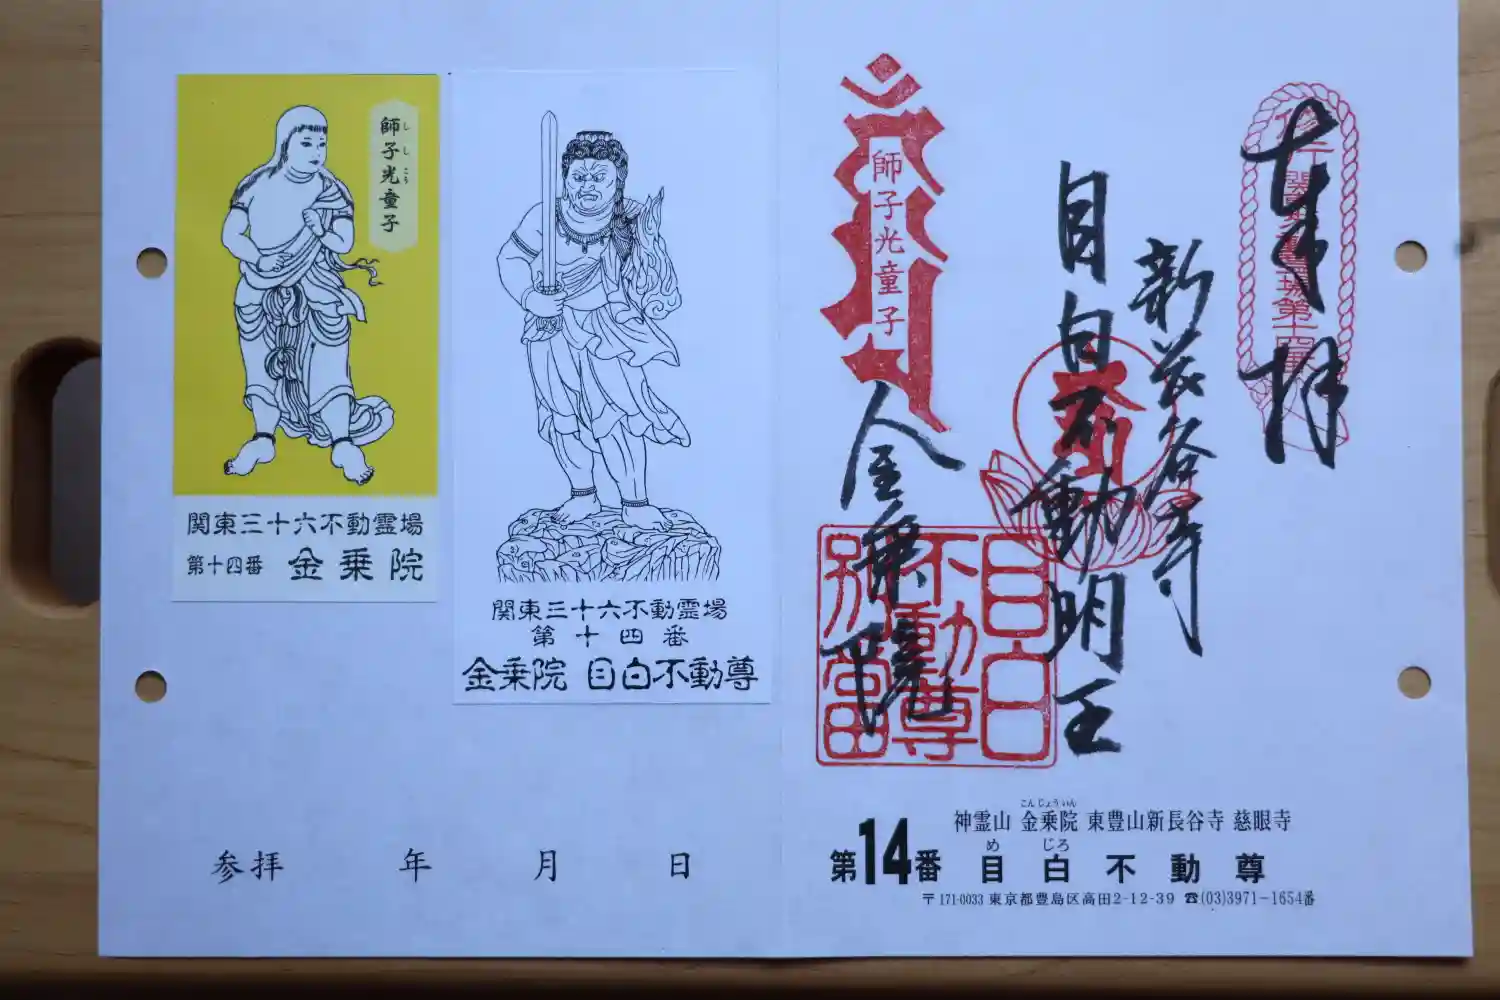 師子光童子
し し こう
関東三十六不動霊場
第十四番 金乗院
関東三十六不動霊場
第十四番
金乗院 目白不動尊
参拝 年 月 日
奉拝
関東三十六不動霊場第十四番
新長谷寺
目白不動明王
金乗院
師子光童子
目白不動尊別當
こんじょういん
神霊山 金乗院 東豊山新長谷寺 慈眼寺
め じろ
第14番 目白不動尊
〒171-0033 東京都豊島区高田2-12-39 ☎(03)3971-1654番